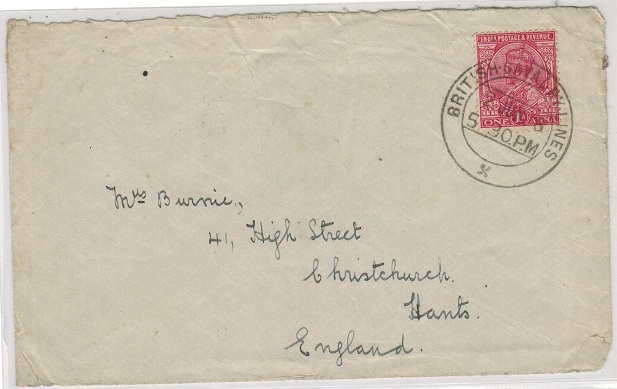 INDIA POSTAGE & REVENUE
ONE 1A ANNA
BRITISH LINES
5.30 P.M
Mrs Burnie,,
41, High Street
Christchurch.
Hants.
England.